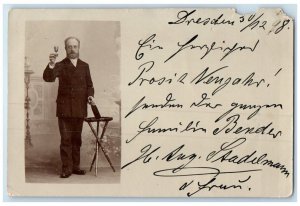 Dresden 30/12 98.
Ein herzliches
Prosit Neujahr!
senden der ganzen
Familie Bender
H. Aug. Stadelmann
u Frau.